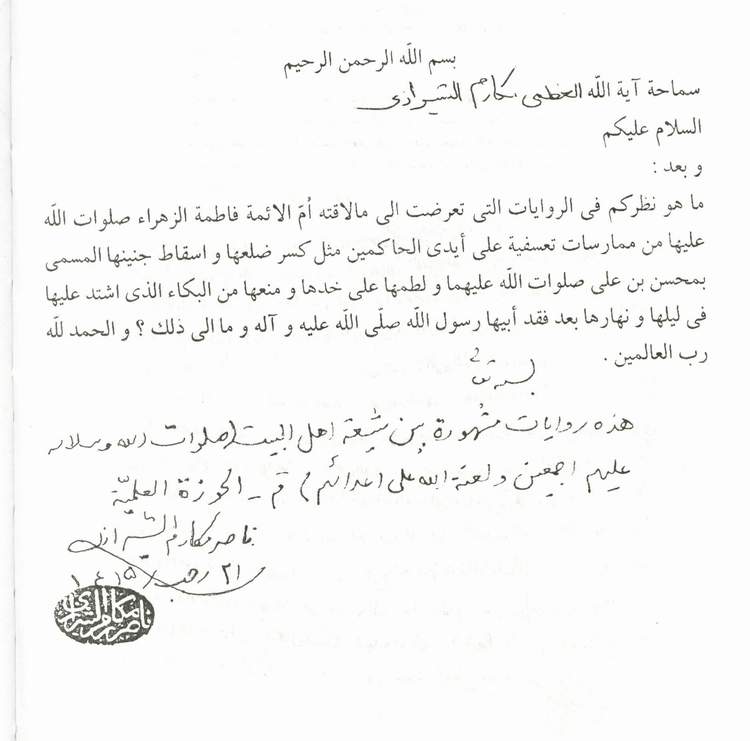 بسم اللّه الرحمن الرحيم
سماحة آية اللّه العظمى مكارم الشيرازى
السلام عليكم
و بعد :
ما هو نظركم فى الروايات التى تعرضت الى مالاقته اُمّ الائمة فاطمة الزهراء صلوات اللّه
عليها من ممارسات تعسفية على أيدى الحاكمين مثل كسر ضلعها و اسقاط جنينها المسمى
بمحسن بن على صلوات اللّه عليهما و لطمها على خدها و منعها من البكاء الذى اشتد عليها
فى ليلها و نهارها بعد فقد أبيها رسول اللّه صلّى اللّه عليه و آله و ما الى ذلك ؟ و الحمد للّه
رب العالمين .
بسمه تعالى
هذه روايات مشهورة بين شيعة اهل البيت (صلوات الله وسلامه
عليهم اجمعين ولعنة الله على اعدائهم) قم ـ الحوزة العلميّة
ناصر مكارم الشيرازى
٢١ رجب / ١٤١٥
ناصر مكارم الشيرازي